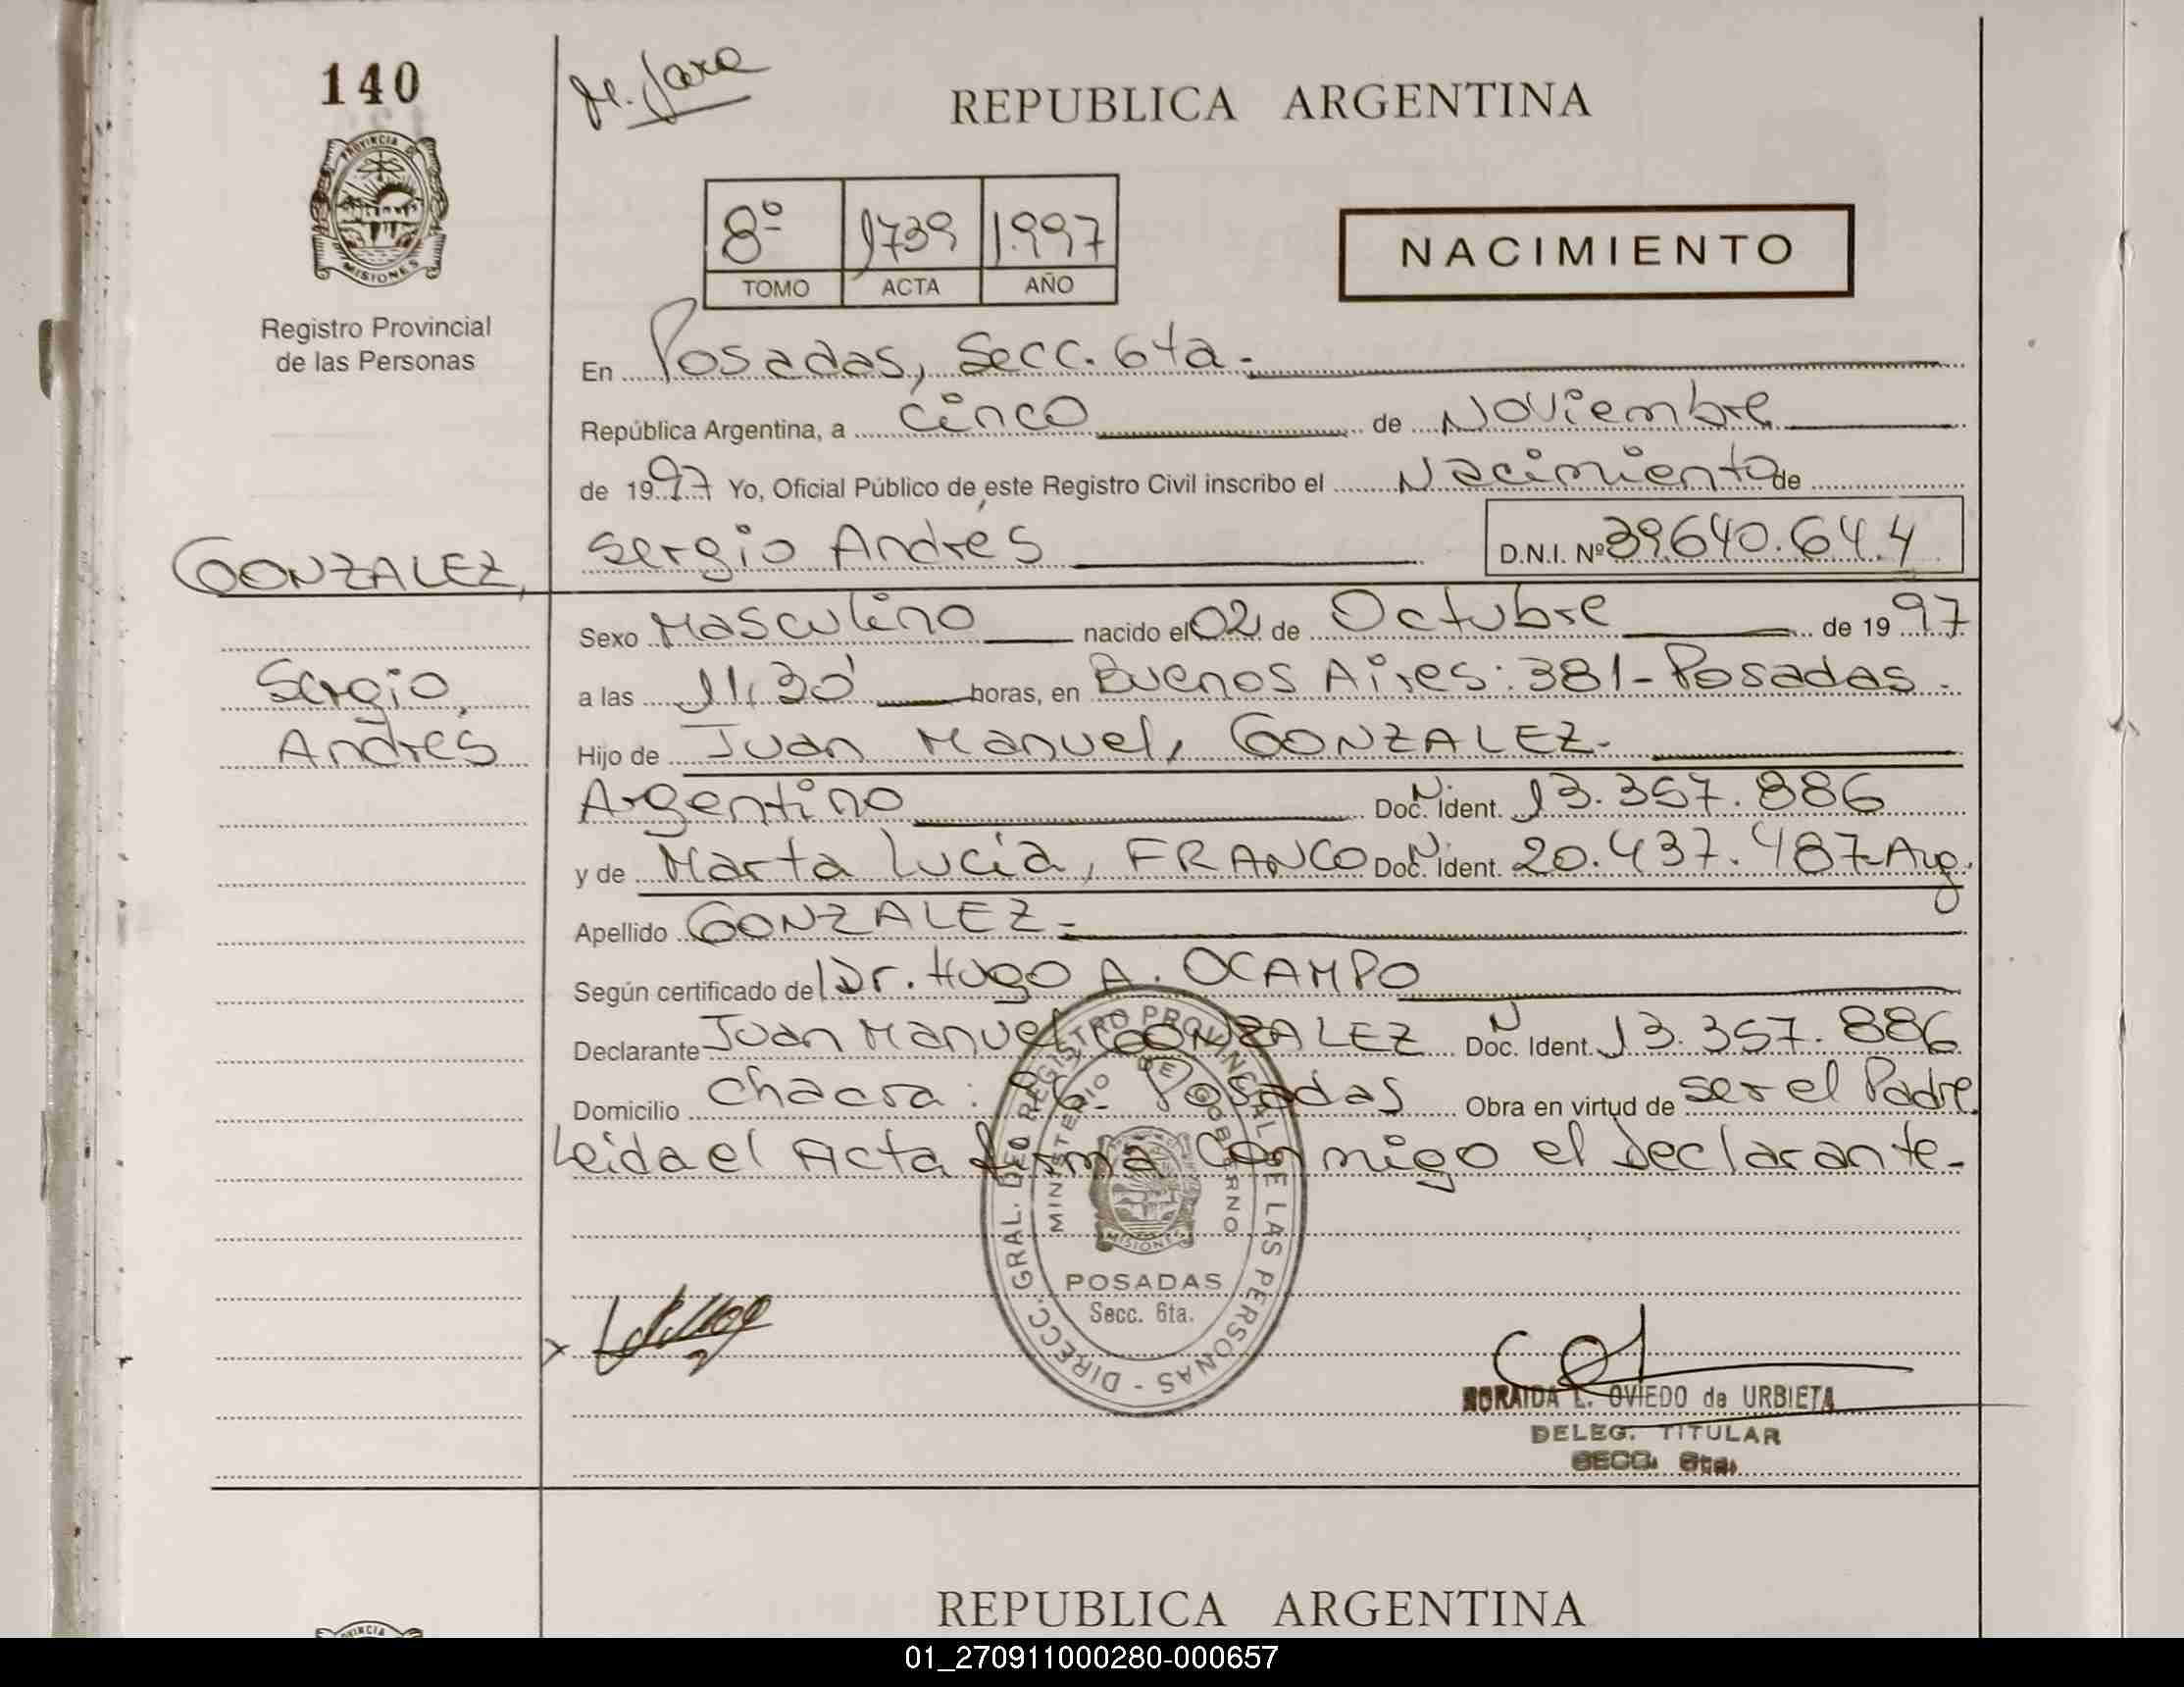 140
M. Jara
REPUBLICA ARGENTINA
PROVINCIA D
MISIONES
8º 1739 1.997
TOMO ACTA AÑO
NACIMIENTO
Registro Provincial
de las Personas
En Posadas, Secc. 6ta.
República Argentina, a cinco de Noviembre
de 1997 Yo, Oficial Público de este Registro Civil inscribo el Nacimiento de
GONZALEZ,
Sergio Andrés D.N.I. Nº 39.640.644
Sergio,
Andrés
Sexo Masculino nacido el 02 de Octubre de 1997
a las 11,30' horas, en Buenos Aires: 381- Posadas.
Hijo de Juan Manuel, GONZALEZ.
Argentino Doc. N Ident. 13.357.886
y de Marta Lucía, FRANCO Doc. N Ident. 20.437.487-Arg.
Apellido GONZALEZ-
Según certificado del Dr. Hugo A. OCAMPO
Declarante Juan Manuel GONZALEZ Doc. N Ident. 13.357.886
Domicilio Chacra: 96- Posadas Obra en virtud de ser el Padre.
Leida el Acta firma conmigo el Declarante-
DIRECC. GRAL. DEL REGISTRO PROVINCIAL DE LAS PERSONAS -
MINISTERIO DE GOBIERNO
MISIONES
POSADAS
Secc. 6ta.
NORAIDA E. OVIEDO de URBIETA
DELEG. TITULAR
SECC. 6ta.
REPUBLICA ARGENTINA
VINCIA
01_270911000280-000657